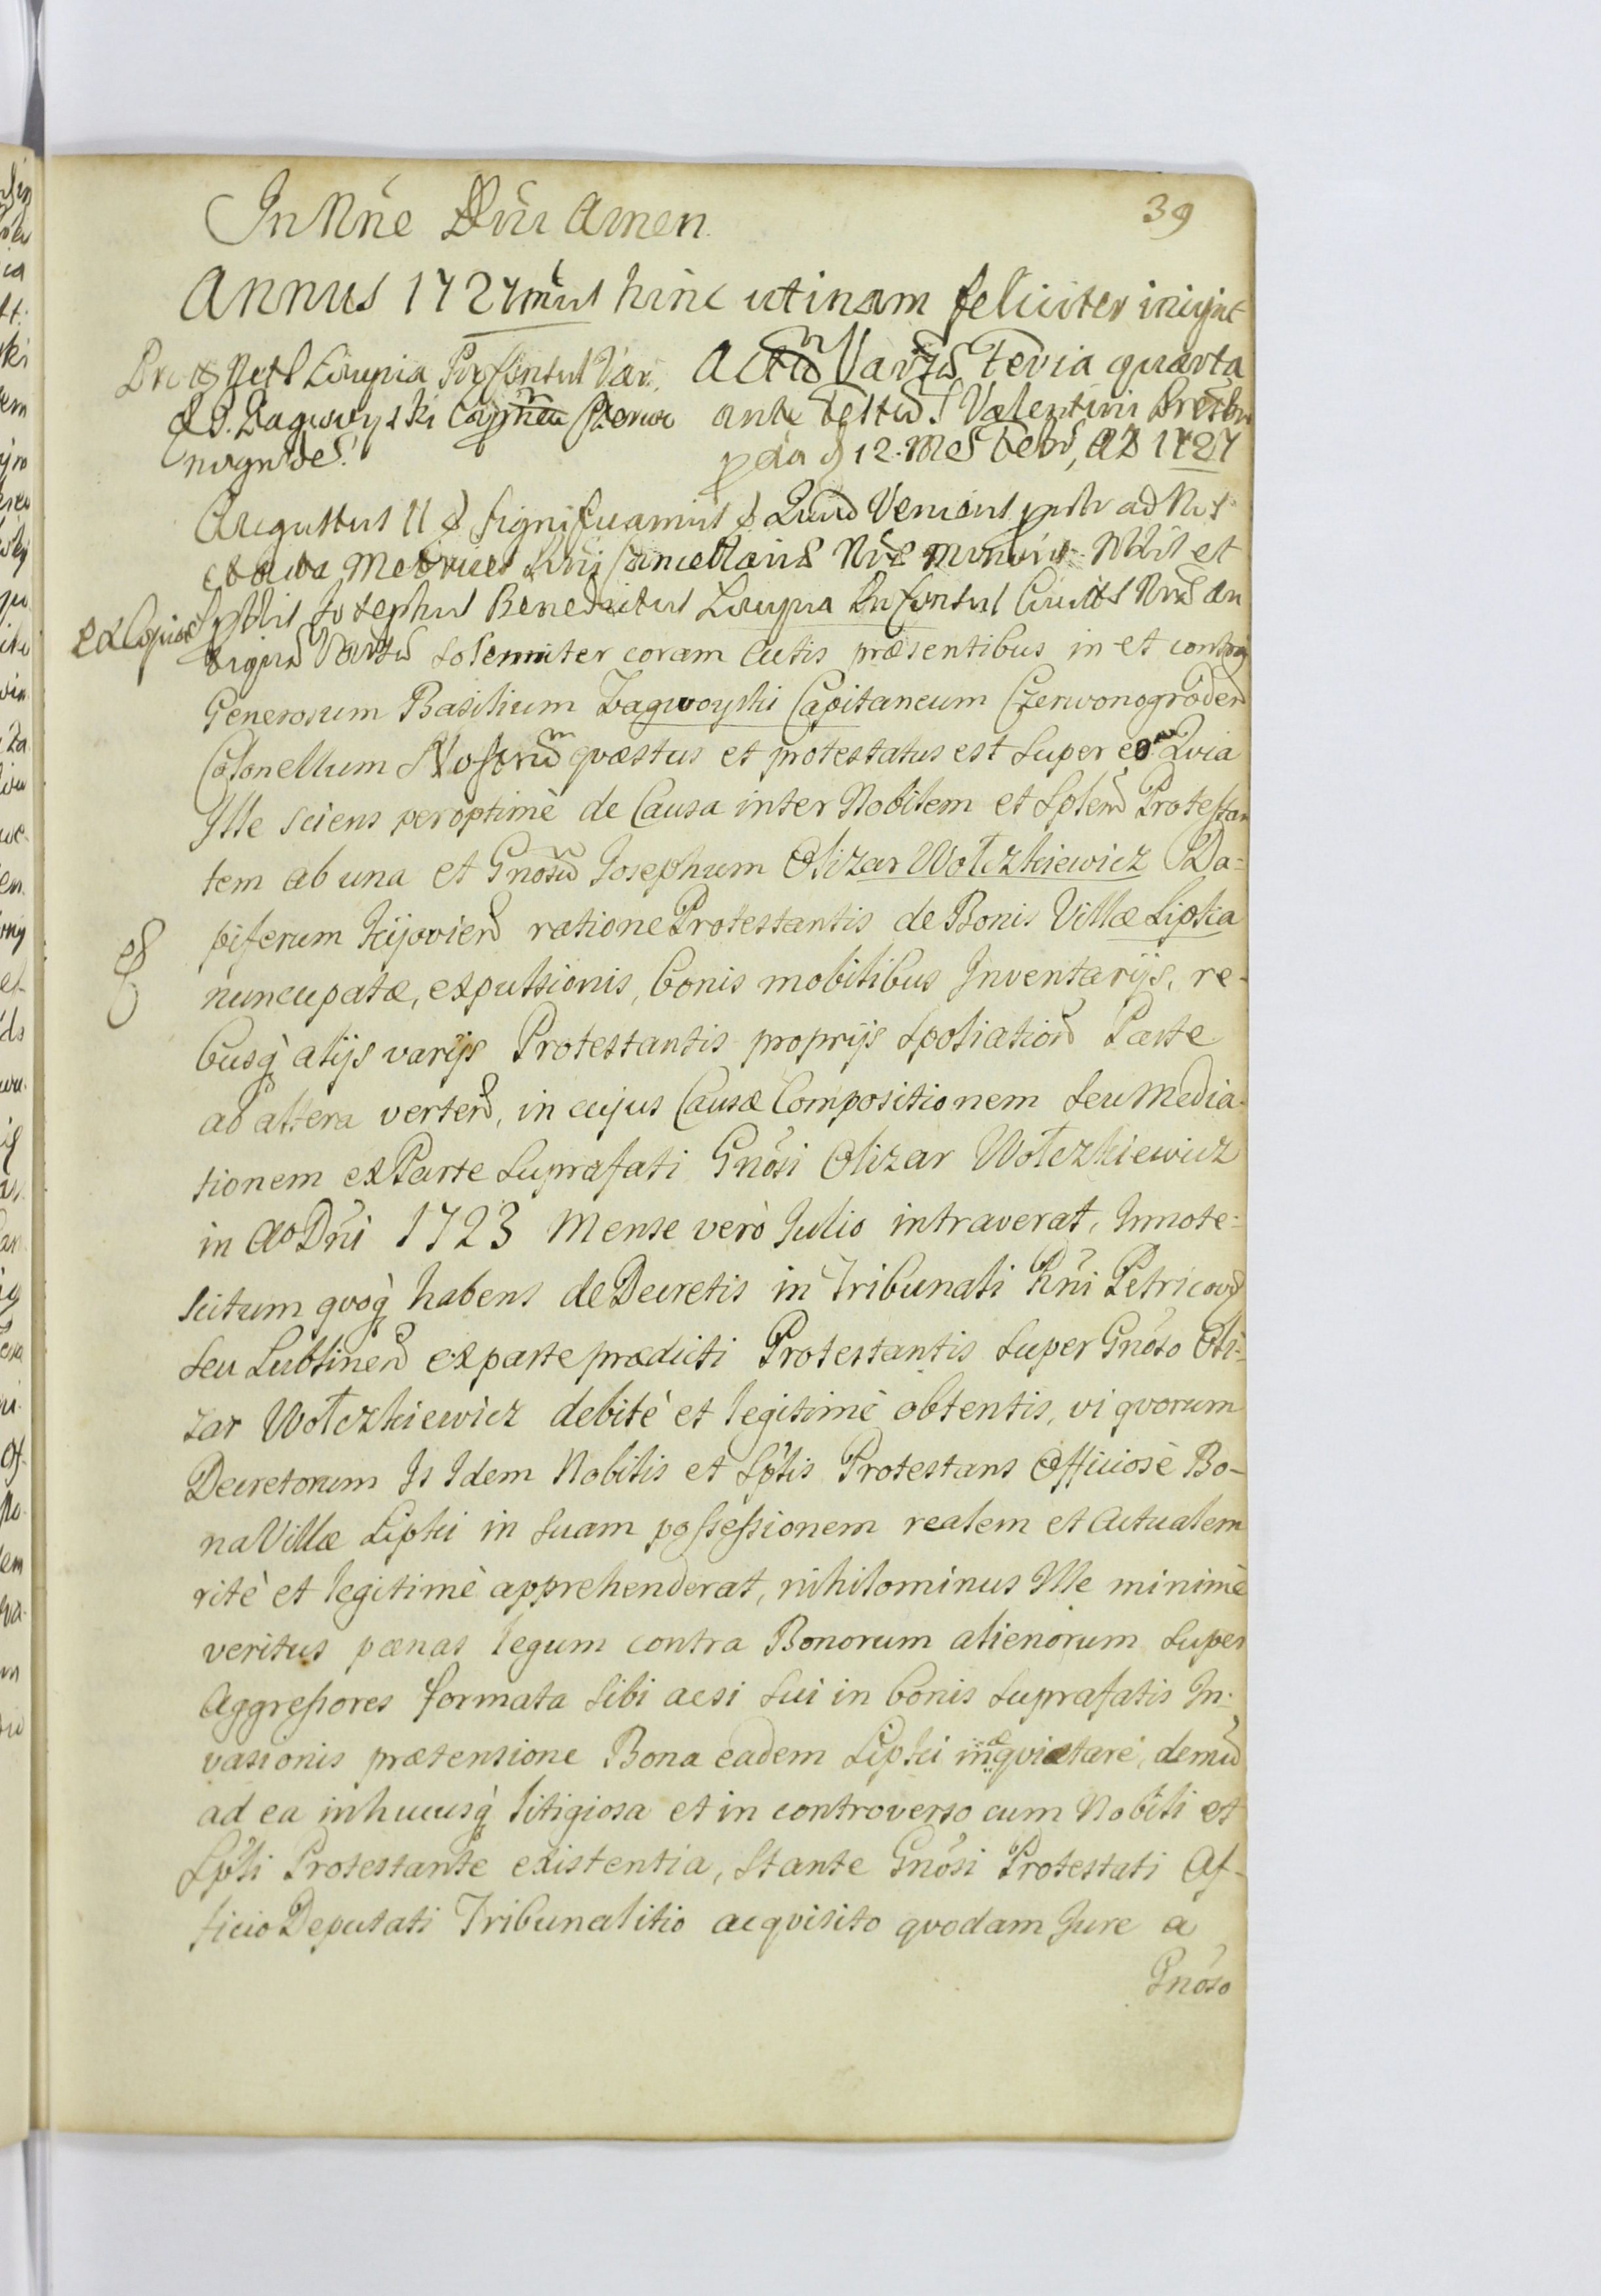 39
In Nñe Dñi Amen.
Annus 1727mus hinc utinam feliciter incipit
Łoupia Proconsul Var. Actũ Varsꝫ Feria quarta
Zagwoyski ante Festũ S Valentini Presb
12. Mẽs Febr, AD 1727
Augustus II significamus Quod Veniens ad
Metrices Cancellariæ et
ex Copia Josephus Benedictus Łoupia Proconsul An
tiquæ Solemniter coram Actis præsentibus in et contra
Generosum Basilium Zagwoyski Capitaneum Czerwonogroden
Colonellum Nostrũ qvæstus et protestatus est super eo Qvia
Ille sciens peroptimè de Causa inter Nobilem et Splend Protestan
tem ab una et Gnosũ Josephum Olizar Wołczkiewicz Da=
piferum Kijovien ratione Protestantis de Bonis Villæ Lipka
nuncupatæ, expulsionis, bonis mobilibus Inventarijs, re-
busq̀ alijs varijs Protestantis proprijs spoliation Parte
ab altera verten, in cujus Causæ Compositionem seu Media-
tionem ex Parte suprafati Gnosi Olizar Wołczkiewicz
in Ao Dñi 1723 Mense verò Julio intraverat, Innote=
scitum qvoq̀ habens de Decretis in Tribunali Rñi Petricov
seu Lublinen ex parte prædicti Protestantis super Gnoso Oli=
zar Wołczkiewicz debitè et legitimè obtentis, vi qvorum
Decretorum Is Idem Nobilis et Splis Protestans Officiosè Bo-
na Villæ Lipki in suam possessionem realem et Actualem
ritè et legitimè apprehenderat, nihilominus Ille minimè
veritus pænas legum contra Bonorum alienorum super
Aggressores formata sibi acsi sui in bonis suprafatis In-
vasionis prætensione Bona eadem Lipki inqvietare, demũ
ad ea inhucusq̀ litigiosa et in controverso cum Nobili et
Spli Protestante existentia, stante Gnosi Protestati Of-
ficio Deputati Tribunalitio acqvisito qvodam Jure a
Gnoso